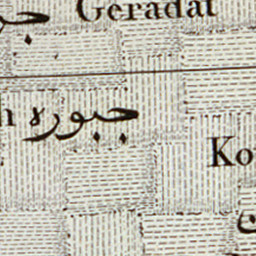 Geradat
جبوره
Ko